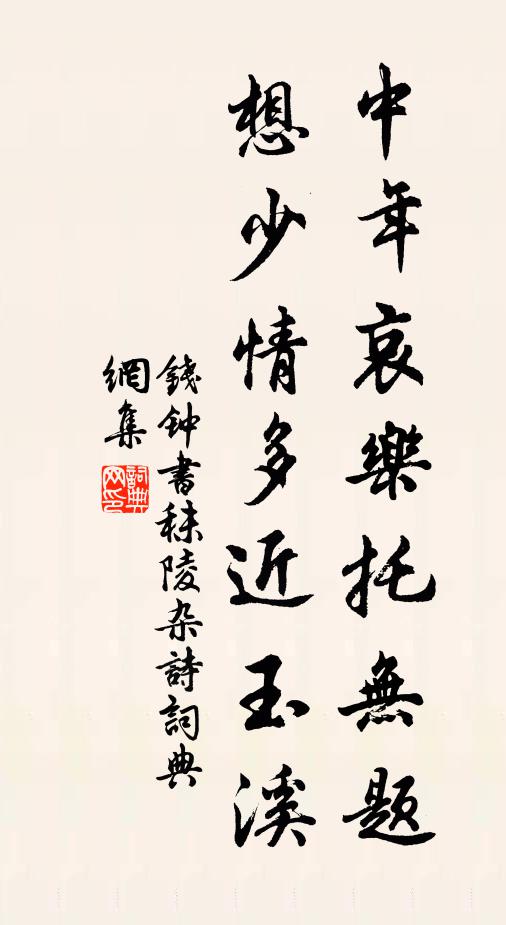 中年哀樂托無題
想少情多近玉溪
錢钟書秣陵杂詩詞典
網集
詞典網印